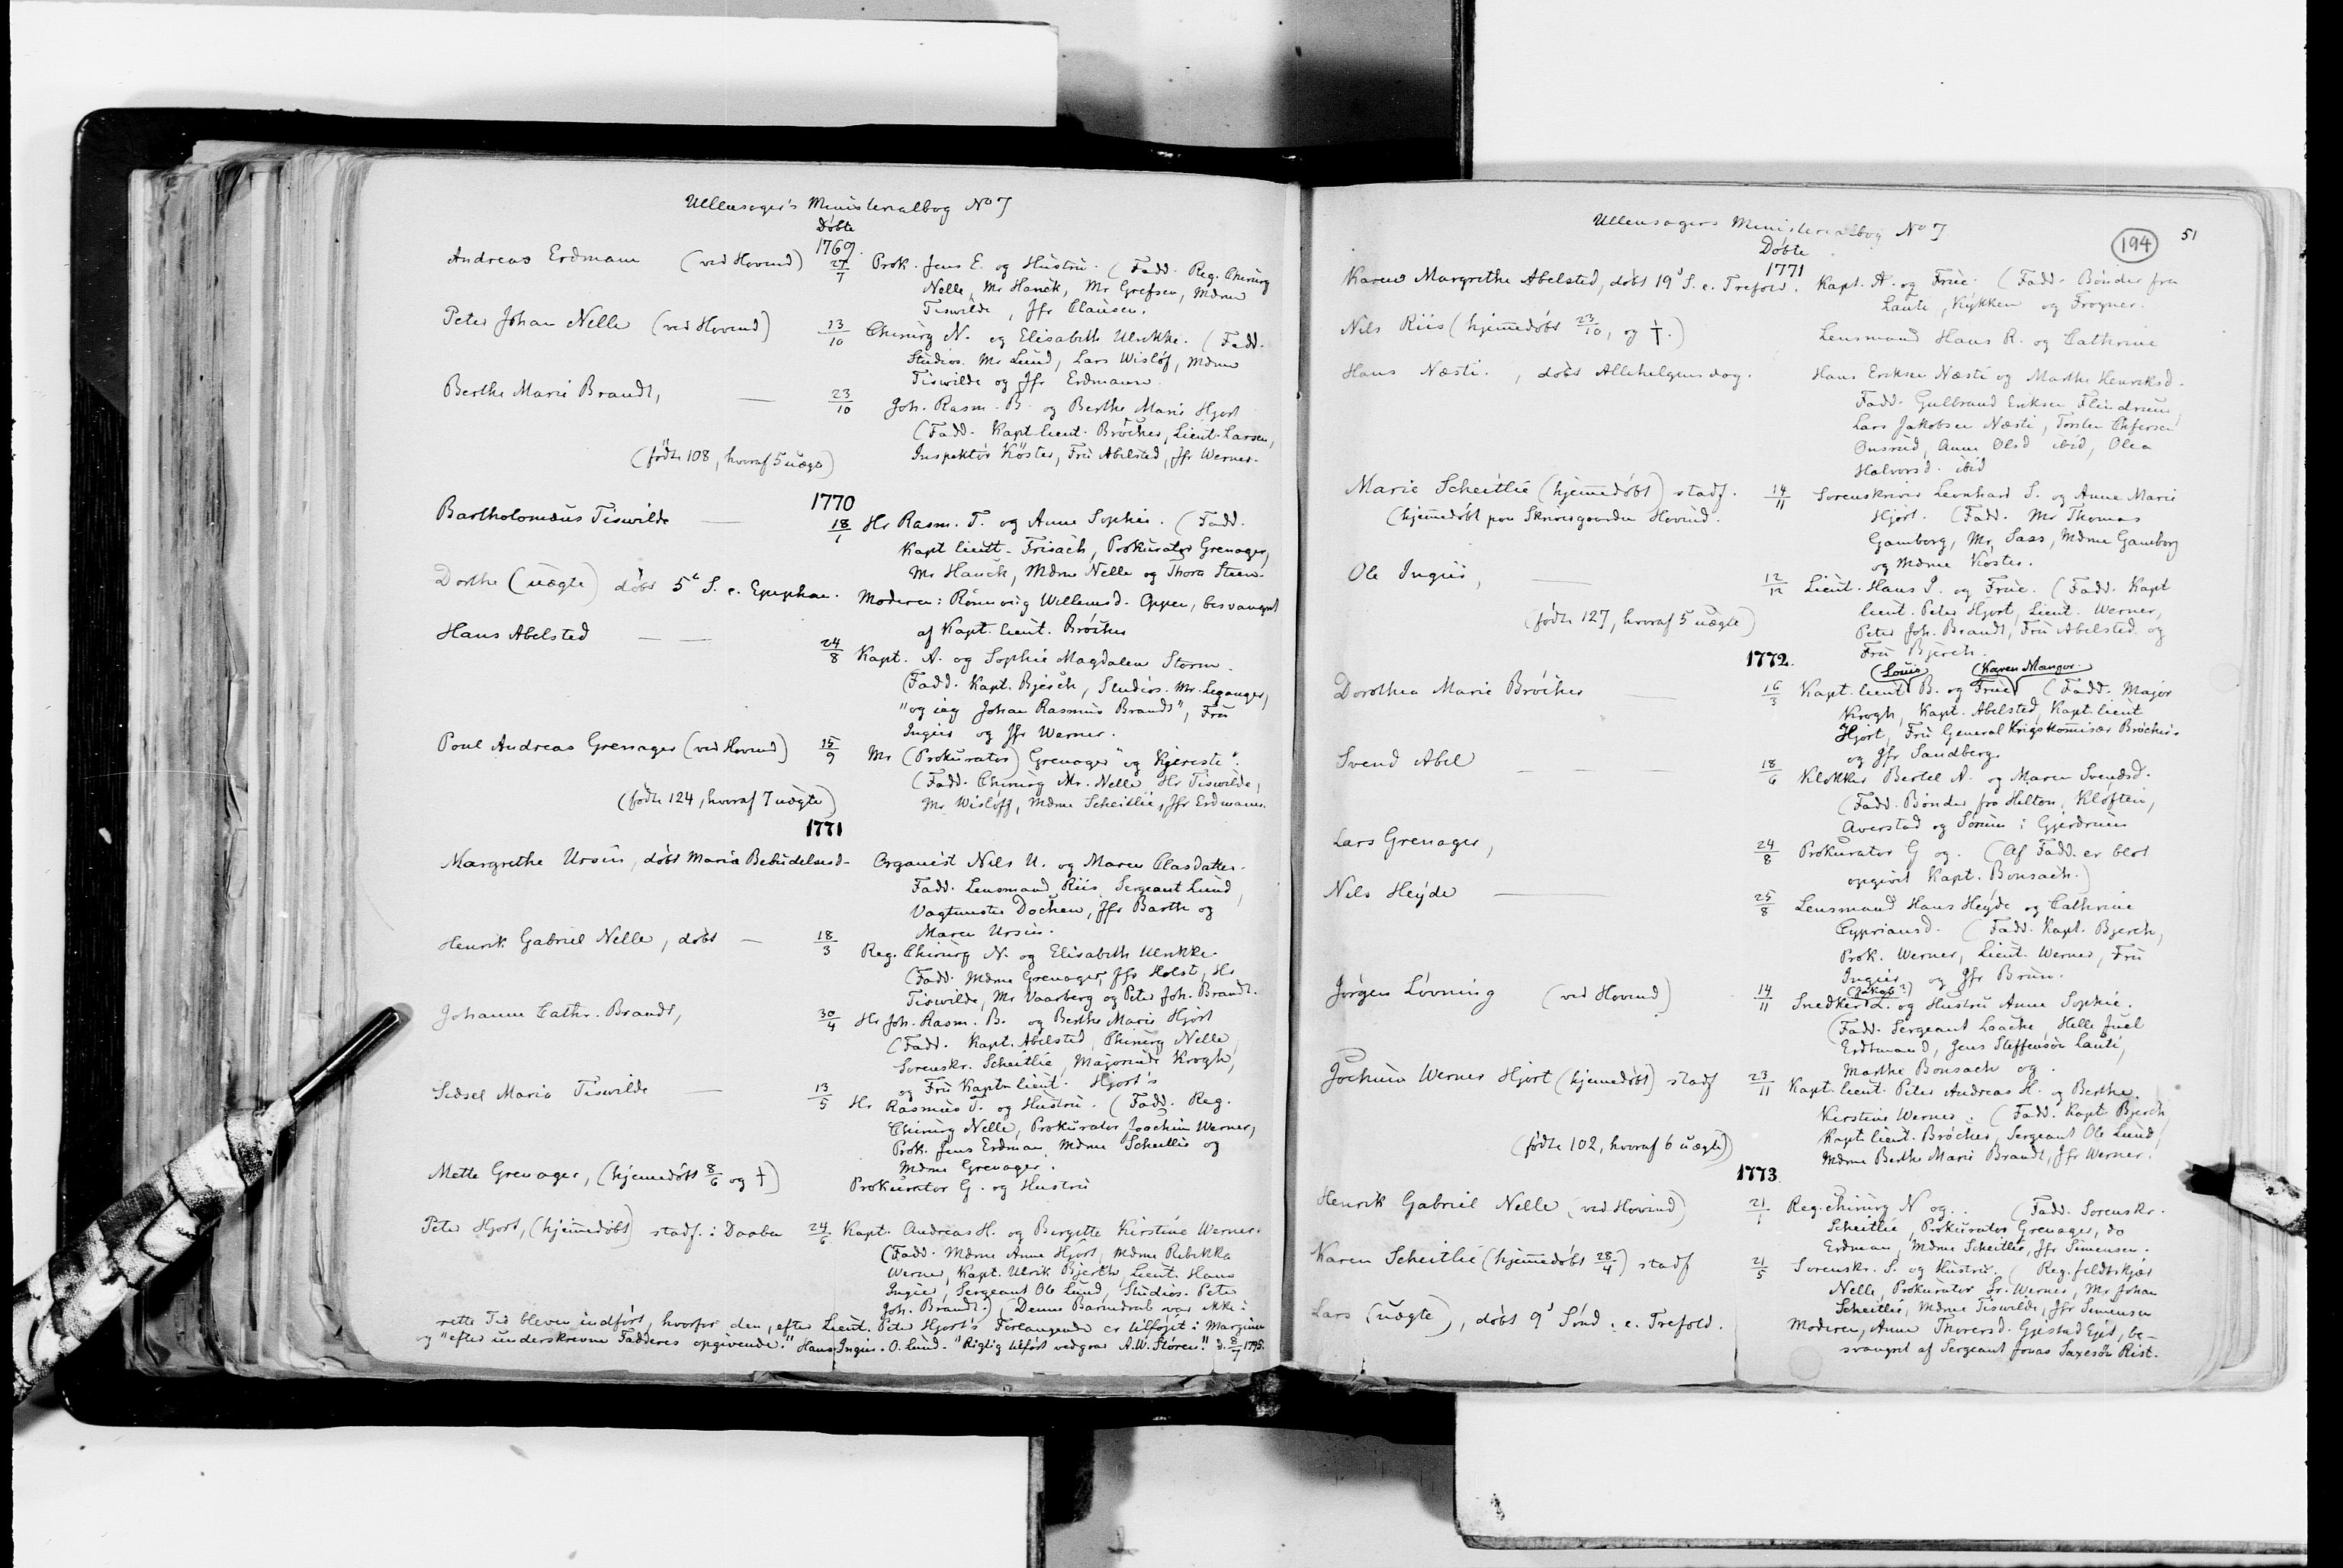 Ullensager's Ministerialbog No 7
Døbte
1769.
Andreas Erdmann (ved Hovind) 27/7 Prok. Jens E. og Hustru. (Fadd. Reg. Chirurg
Nelle, Mr Hauck, Mr Grefsen, Mdme
Tiswilde, Jfr Clausen.
Peter Johan Nelle (ved Hovind) 13/10 Chirurg N. og Elisabeth Ulrikke. (Fadd.
Studios. Mr Lund, Lars Wisløf, Mdme
Tiswilde og Jfr Erdmann.
Berthe Marie Brandt, — 23/10 Joh. Rasm. B. og Berthe Marie Hjort
(Fadd. Kapt. lieut. Bröcher, Lieut. Larsen,
(födte 108, hvoraf 5 uægte) Inspektör Köster, Fru Abelsted, Jfr Werner.
1770
Bartholomæus Tiswilde — 18/1 Hr Rasm. T. og Anne Sophie. (Fadd.
Kapt lieutt. Frisach, Prokurator Grenager,
Mr Hauck, Mdme Nelle og Thora Steen.
Dorthe (uægte) døbt 5te S. e. Epiphan. Moderen: Rönnovig Willemsd. Oppen, besvangret
af Kapt. lieut. Bröcher
Hans Abelsted — — 24/8 Kapt. A. og Sophie Magdalen Storm.
(Fadd. Kapt. Bjerch, Studios. Mr. Leganger,
"og jeg Johan Rasmus Brandt", Fru
Ingier og Jfr Werner.
Poul Andreas Grenager (ved Hovind) 15/9 Mr (Prokurator) Grenager "og Kjereste".
(Fadd. Chirurg Mr. Nelle, Hr Tiswilde,
(födte 124, hvoraf 7 uægte) Mr Wisløff, Mdme Scheitlie, Jfr Erdmann.
1771
Margrethe Ursin, döbt Maria Bebudelsesd. Organist Nils U. og Maren Clasdatter.
Fadd. Lensmand Riis, Sergeant Lund,
Vagtmester Dochen, Jfr Barth og
Maren Ursin.
Henrik Gabriel Nelle, döbt — 18/3 Reg. Chirurg N. og Elisabeth Ulrikke.
(Fadd. Mdme Grenager, Jfr Holst, Hr
Tiswilde, Mr Vaarberg og Peter Joh. Brandt.
Johanne Cathr. Brandt, 30/4 Hr Joh. Rasm. B. og Berthe Marie Hjort
(Fadd. Kapt. Abelsted, Chirurg Nelle,
Sorenskr. Scheitlie, Majorinde Krogh,
og Fru Kapt. lieut. Hjort's
Sidsel Maria Tiswilde — 13/5 Hr Rasmus T. og Hustru. (Fadd. Reg.
Chirurg Nelle, Prokurator Joachim Werner,
Prok. Jens Erdman, Mdme Scheitlie og
Mdme Grenager.
Mette Grenager, (hjemmedöbt 8/6 og †) Prokurator G. og Hustru
Peter Hjort, (hjemmedöbt) stadf. i Daaben 24/6 Kapt. Andreas H. og Birgitte Kirstine Werner.
(Fadd. Mdme Anne Hjort, Mdme Rebekka
Werner, Kapt. Ulrik Bjerch, Lieut. Hans
Ingier, Sergeant Ole Lund, Studios. Peter
Joh. Brandt.) (Denne Barnedaab var ikke i
rette Tid bleven indfört, hvorfor den, efter Lieut. Peter Hjort's Forlangende er tilföjet i Marginen
og "efter underskrevne Fadderes opgivende." Hans Ingier. O. Lund. "Rigtig tilfört vedgaar A.W. Stören." d. 8/7 1795.
Ullensagers Ministerialbog No 7
194 51
Døbte
1771
Karen Margrethe Abelsted, døbt 19d S. e. Trefold. Kapt. A. og Frue. (Fadd. Bönder fra
Laute, Kykken og Frogner.
Nils Riis (hjemmedöbt 23/10, og †.) Lensmand Hans R. og Cathrine
Hans Næsti. , döbt Allehelgensdag. Hans Eriksen Næsti og Marthe Henriksd.
Fadd. Gulbrand Eriksen Flindrum,
Lars Jakobsen Næsti, Torsten
Onsrud, Anne Olsd ibid, Olea
Halvorsd. ibid
Marie Scheitlie (hjemmedöbt) stadf. 14/11 Sorenskriver Leonhard S. og Anne Marie
(hjemmedöbt paa Skrivergaarden Hovind. Hjort. (Fadd. Mr Thomas
Gamborg, Mr Sass, Mdme Gamborg
og Mdme Köster.
Ole Ingier, — 12/12 Lieut. Hans I. og Frue. (Fadd. Kapt
lieut. Peter Hjort, Lieut. Werner,
(födte 127, hvoraf 5 uægte) Peter Joh. Brandt, Fru Abelsted og
Fru Bjerch.
1772.
(Louis) (Karen Mangor.)
Dorothea Marie Bröcher — 16/3 Kapt. lieut B. og Frue (Fadd. Major
Krogh, Kapt. Abelsted, Kapt. lieut
Hjort, Fru General Krigskommisær Bröcher.
og Jfr Sandberg.
Svend Abel — — 18/6 Klokker Bertel A. og Maren Svendsd.
(Fadd. Bönder fra Hilton, Klöften,
Averstad og Sörum i Gjerdrum
Lars Grenager, 24/8 Prokurator G og. (Af Fadd. er blot
opgivet Kapt. Bonsach.)
Nils Heyde — 25/8 Lensmand Hans Heyde og Cathrine
Cypriansd. (Fadd. Kapt. Bjerch,
Prok. Werner, Lieut. Werner, Fru
Ingier, og Jfr Brun.
(Jakob?)
Jörgen Lövning (ved Hovind) 14/11 Snedker L. og Hustru Anne Sophie.
(Fadd. Sergeant Laache, Helle Juel
Erdtmand, Jens Steffensön Lauti,
Marthe Bonsach og .
Jochum Werner Hjort (hjemmedöbt) stadf 23/11 Kapt. lieut. Peter Andreas H. og Berthe
Kirstine Werner. (Fadd. Kapt Bjerch
Kapt. lieut. Bröcher, Sergeant Ole Lund,
(födte 102, hvoraf 6 uægte) Mdme Berthe Marie Brandt, Jfr Werner.
1773
Henrik Gabriel Nelle (ved Hovind) 21/1 Reg. chirurg N og. . (Fadd. Sorenskr.
Scheitlie, Prokurator Grenager, do
Erdman, Mdme Scheitlie, Jfr Simensen.
Karen Scheitlie (hjemmedöbt 28/4) stadf 21/5 Sorenskr. S. og Hustru. (Reg. feldtskjær
Nelle, Prokurator Sr. Werner, Mr Johan
Scheitlie, Mdme Tiswilde, Jfr Simensen
Lars (uægte), döbt 9d Sönd. e. Trefold. Moderen, Anne Thorersd. Gjestad Ejet, be-
svangret af Sergeant Jonas Saxesön Rist.